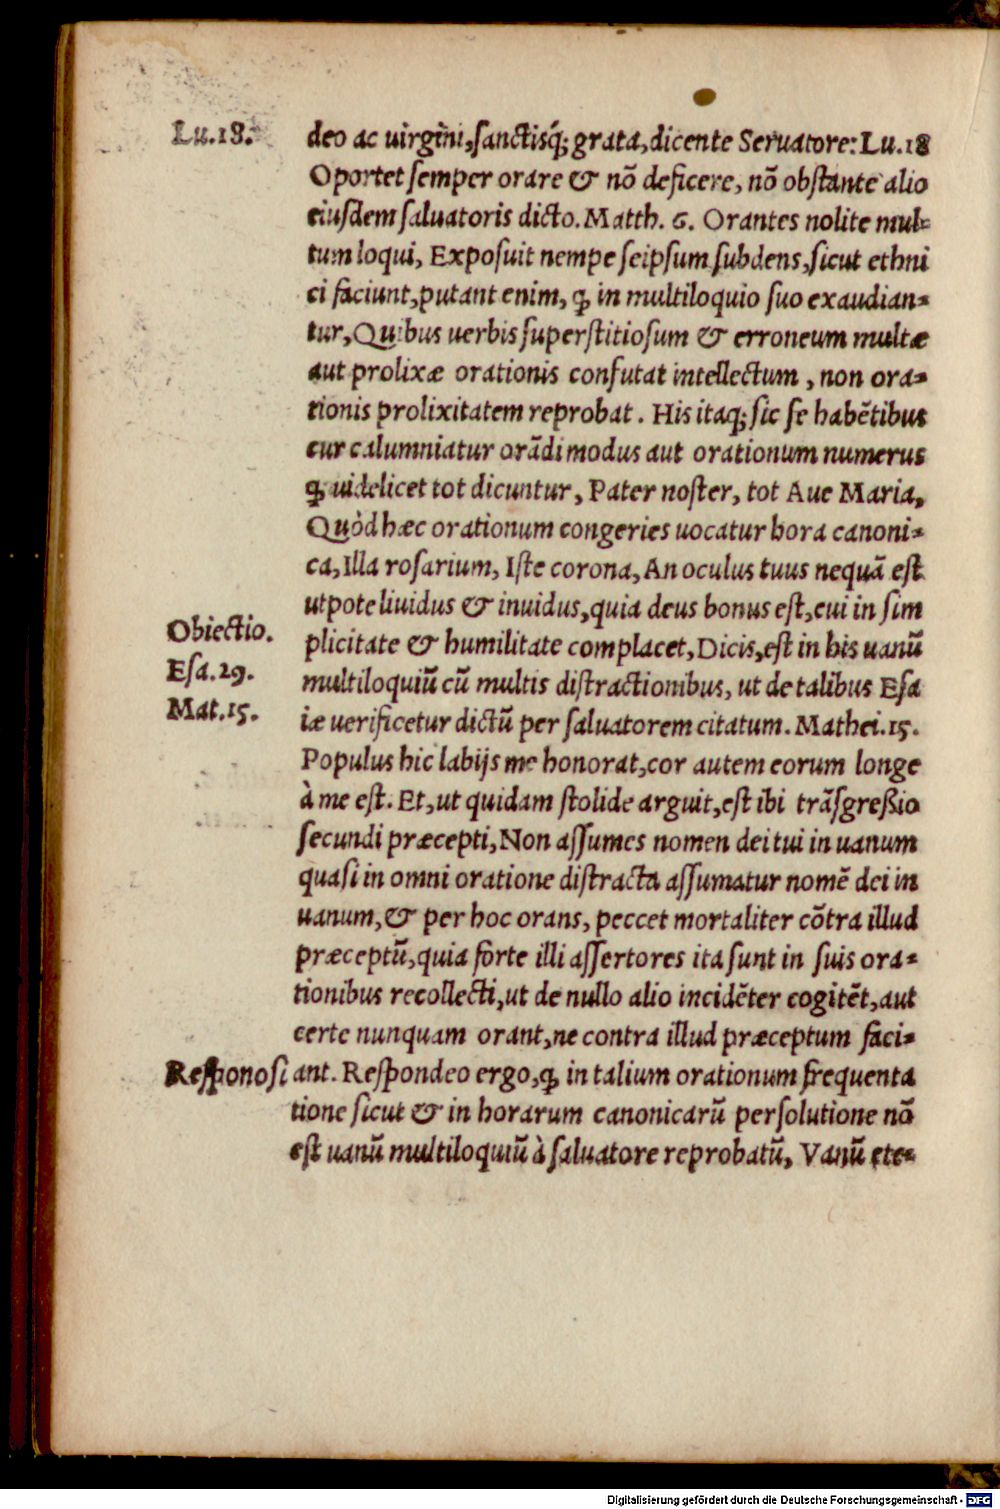 Lu.18.
deo ac uirgini,ſanctisq́; grata,dicente Seruatore: Lu.18
Oportet ſemper orare & nō deficere, nō obſtante alio
eiuſdem ſaluatoris dicto. Matth. 6. Orantes nolite mul-
tum loqui, Expoſuit nempe ſeipſum ſubdens,ſicut ethni
ci faciunt,putant enim, ꝙ in multiloquio ſuo exaudian-
tur,Quibus uerbis ſuperſtitioſum & erroneum multæ
aut prolixæ orationis confutat intellectum , non ora-
tionis prolixitatem reprobat . His itaq; ſic ſe habētibus
cur calumniatur orādi modus aut orationum numerus
ꝙ uidelicet tot dicuntur, Pater noſter, tot Aue Maria,
Quòd hæc orationum congeries uocatur hora canoni-
ca, Illa roſarium, Iſte corona, An oculus tuus nequā eſt
utpote liuidus & inuidus,quia deus bonus eſt,cui in ſim
Obiectio.
plicitate & humilitate complacet, Dicis,eſt in his uanū
Eſa.29.
multiloquiū cū multis diſtractionibus, ut de talibus Eſa
Mat.15.
iæ uerificetur dictū per ſaluatorem citatum. Mathei.15.
Populus hic labijs me honorat,cor autem eorum longe
à me eſt. Et,ut quidam ſtolide arguit,eſt ibi trāſgreßio
ſecundi præcepti, Non aſſumes nomen dei tui in uanum
quaſi in omni oratione diſtracta aſſumatur nomē dei in
uanum,& per hoc orans, peccet mortaliter cōtra illud
præceptū,quia forte illi aſſertores ita ſunt in ſuis ora-
tionibus recollecti,ut de nullo alio incidēter cogitēt,aut
certe nunquam orant,ne contra illud præceptum faci-
Reſponoſi
ant. Reſpondeo ergo,ꝙ in talium orationum frequenta
tione ſicut & in horarum canonicarū perſolutione nō
eſt uanū multiloquiū à ſaluatore reprobatū, Vanū ete-
Digitalisierung gefördert durch die Deutsche Forschungsgemeinschaft - DFG